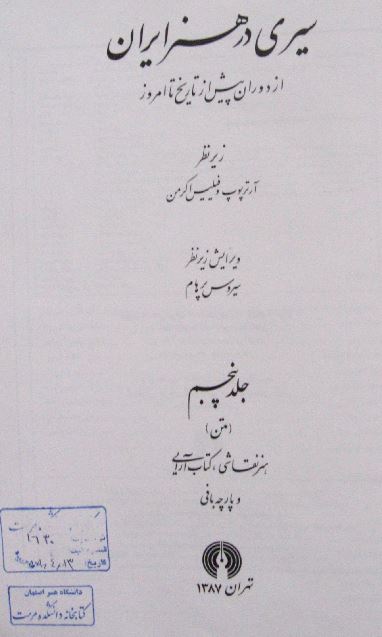 سیری در هنر ایران
از دوران پیش از تاریخ تا امروز
زیر نظر
آرتر پوپ و فیلیس اکرمن
ویرایش زیر نظر
سیروس پرهام
جلد پنجم
(متن)
هنر نقاشی، کتاب آرایی
و پارچه بافی
تهران ۱۳۸۷
تاریخ:
دانشگاه هنر اصفهان
کتابخانه دانشکده مرمت